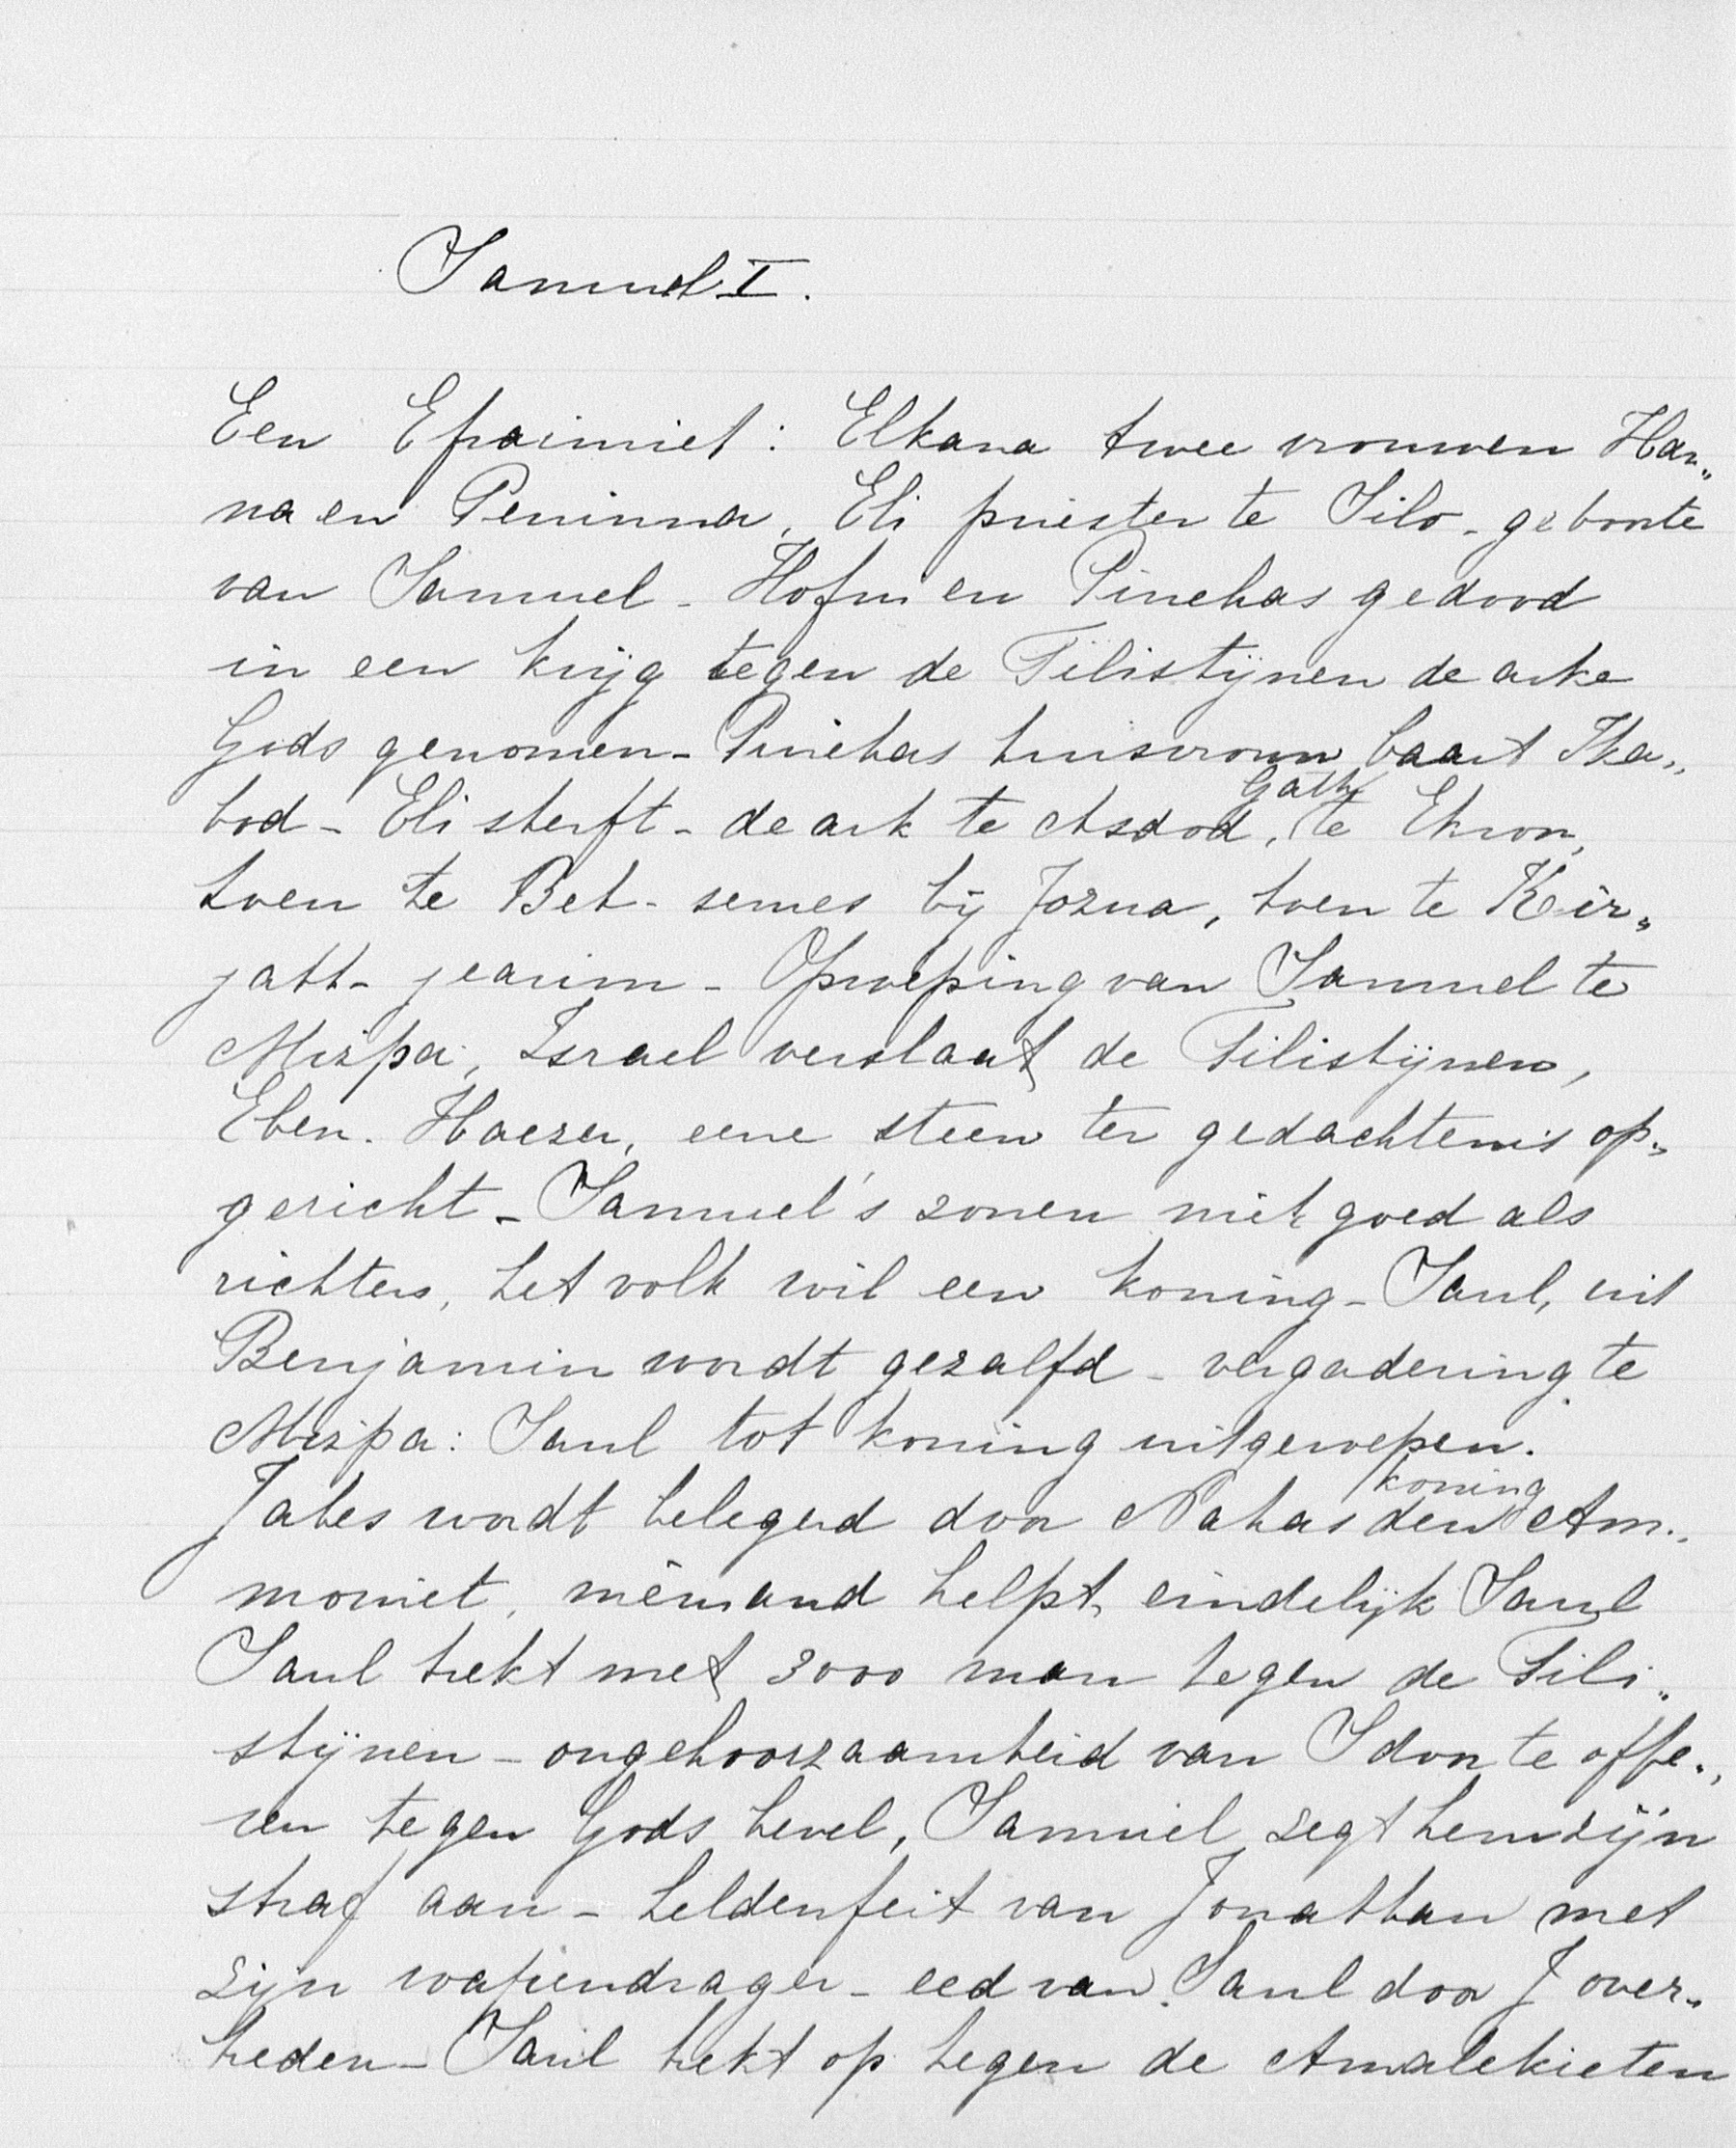 Samuel I.
Een Efraimiet: Elkana twee vrouwen Han„
na en Peninna, Eli priester te Silo - geboorte
van Samuel - Hofni en Pinehas gedood
in een krijg tegen de Filistijnen de arke
Gods genomen - Pinehas huisvrouw baart Ika„
bod - Eli sterft - de ark te Asdod, Gath, te Ekron,
toen te Bet-semes bij Jozua, toen te Kir„
jath-jearim - Oproeping van Samuel te
Mizpa, Israel verslaat de Filistijnen,
Eben. Haezer, eene steen ter gedachtenis op„
gericht - Samuel's zonen niet goed als
richters, het volk wil een koning - Saul, uit
Benjamin wordt gezalfd - vergadering te
Mizpa: Saul tot koning uitgeroepen.
Jabes wordt belegerd door Nahas den koning Am„
moniet, niemand helpt, eindelijk Saul
Saul trekt met 3000 man tegen de Fili„
stijnen - ongehoorzaamheid van S door te offe„
ren tegen Gods bevel, Samuel zegt hem zijn
straf aan - heldenfeit van Jonathan met
zijn wapendrager - eed van Saul door J over„
treden - Saul trekt op tegen de Amalekieten